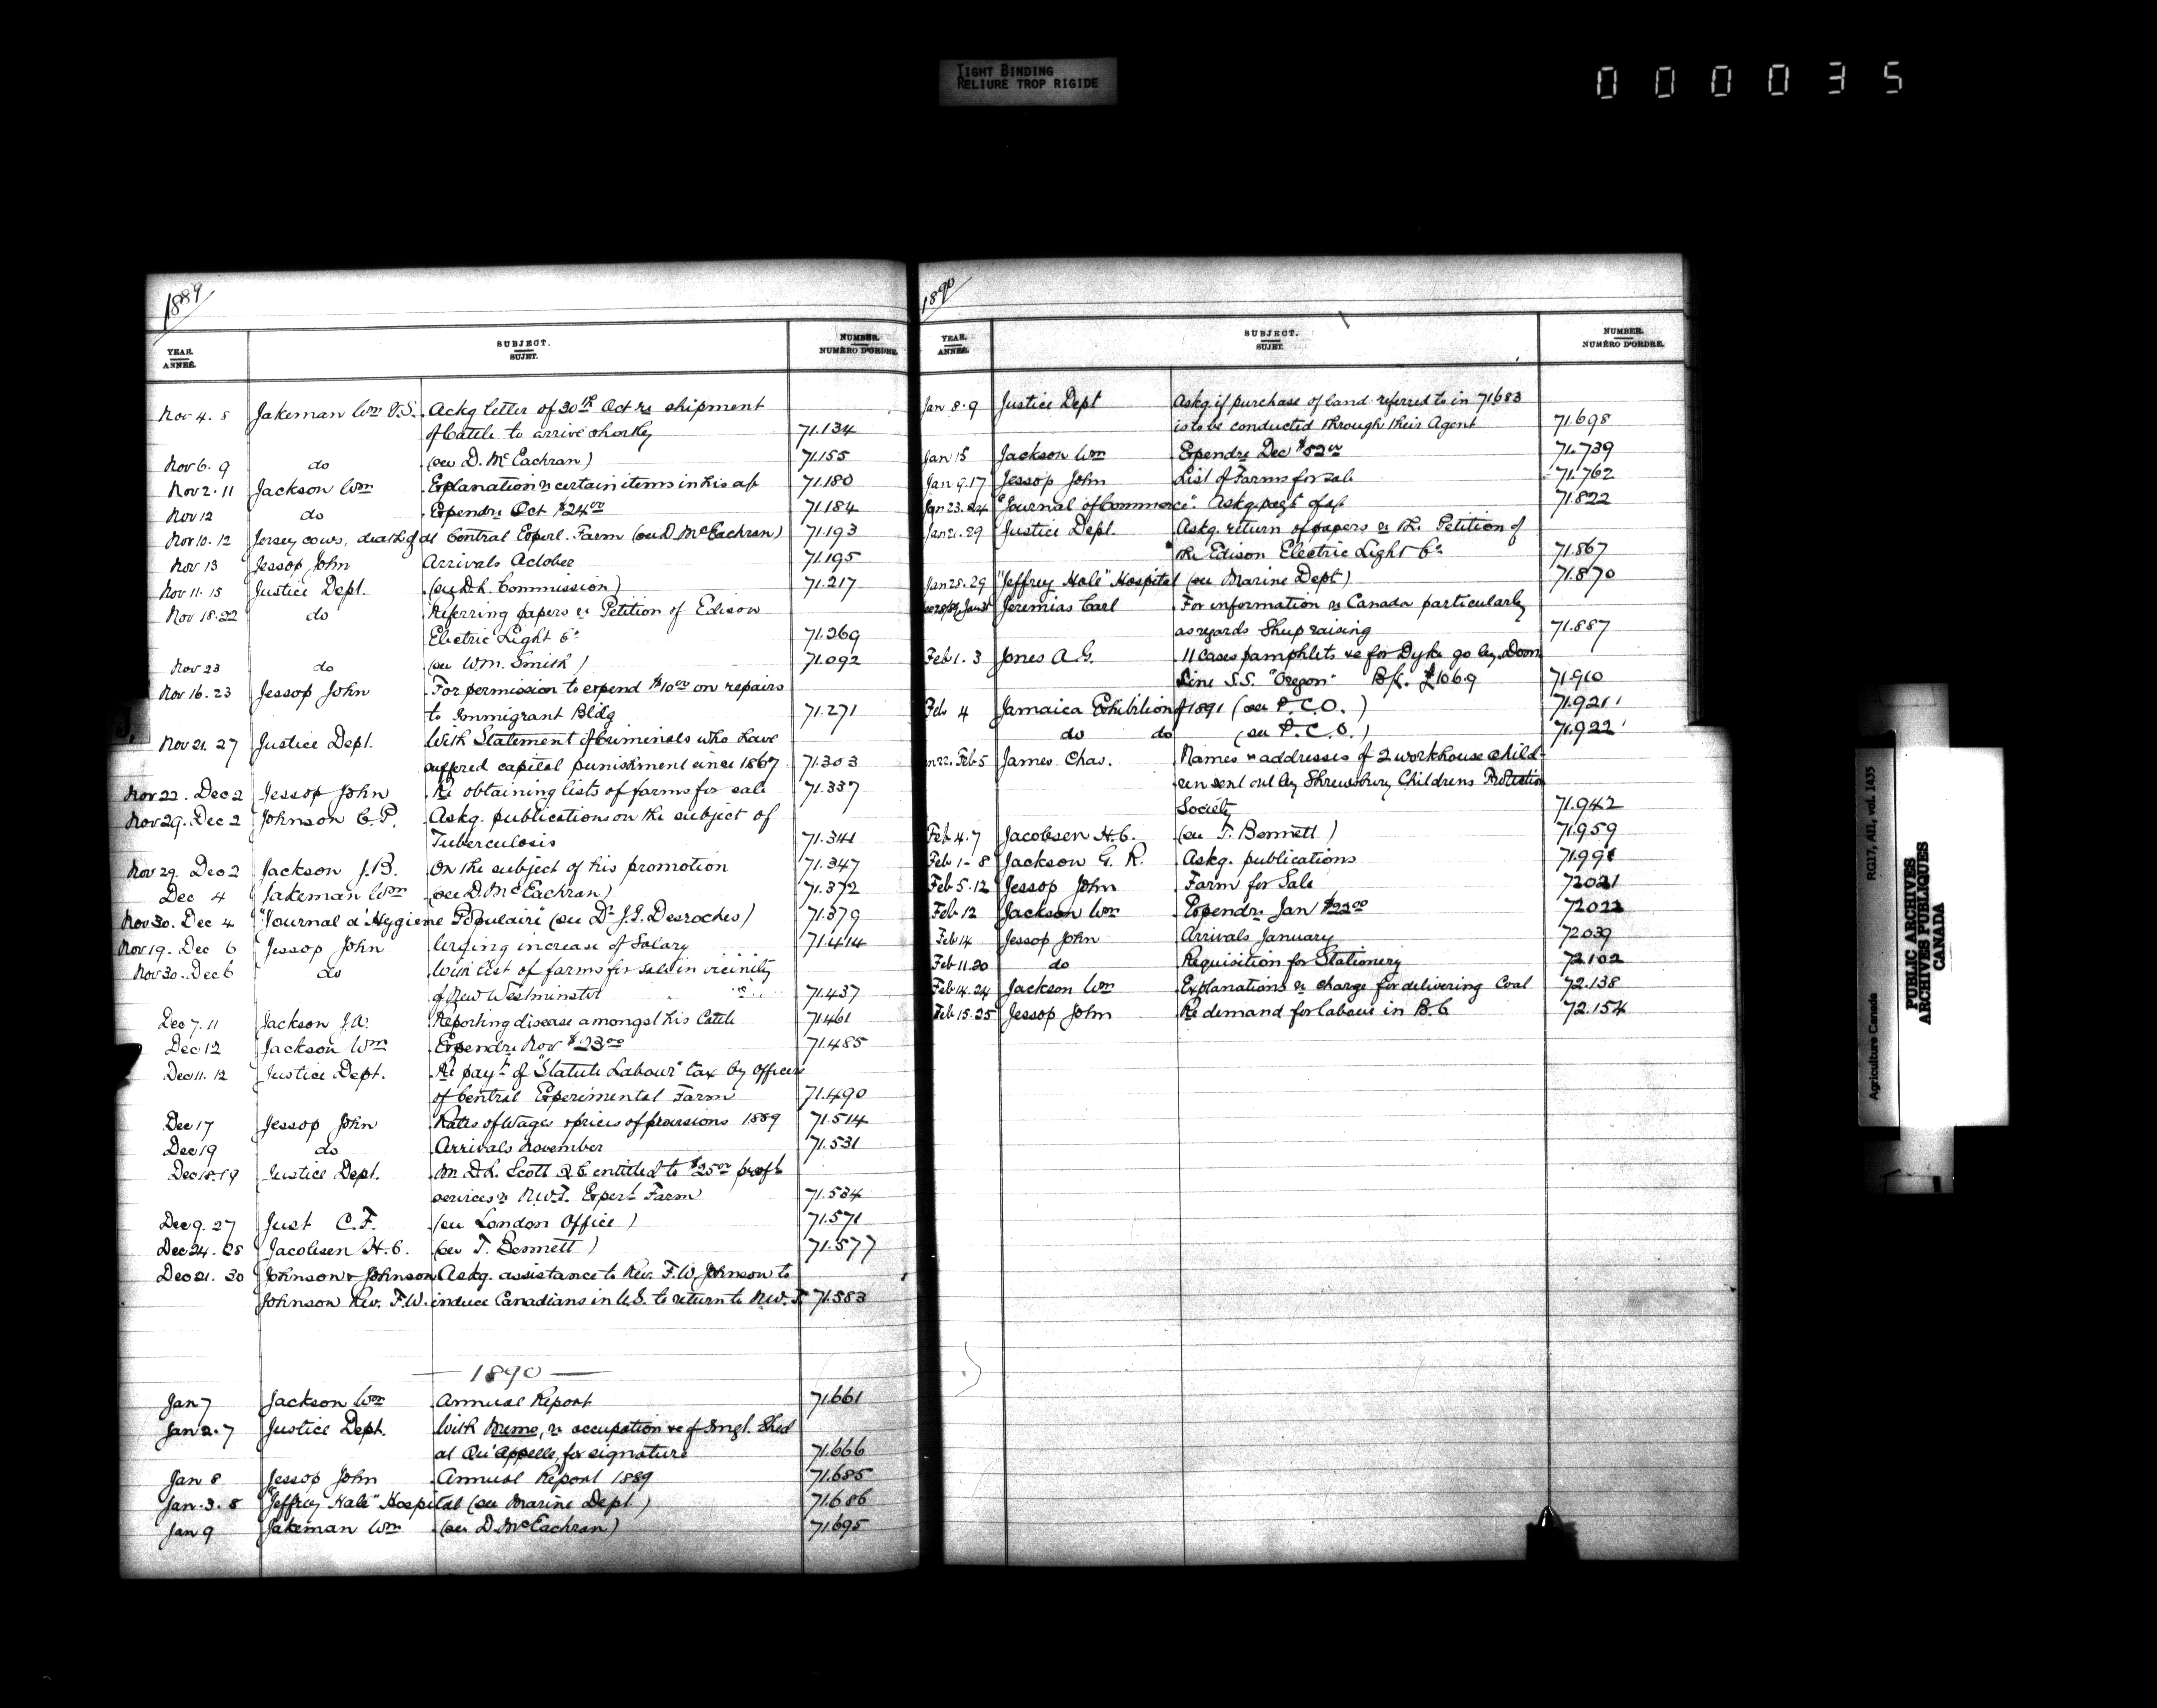 TIGHT BINDING
RELIURE TROP RIGIDE
000035
1889
YEAR. ANNÉE. SUBJECT. SUJET. NUMBER. NUMÉRO D'ORDRE.
Nov 4. 8 Jakeman Wm V.S. Ackg letter of 30th Oct re shipment
of Cattle to arrive shortly 71.134
Nov 6. 9 do (see D. McEachran) 71.155
Nov 2. 11 Jackson Wm Explanation re certain items in his a/c 71.180
Nov 12 do Expendre Oct $24.00 71.184
Nov 10. 12 Jersey cows, death of at Central Experl. Farm (see D. McEachran) 71.193
Nov 13 Jessop John Arrivals October 71.195
Nov 11. 15 Justice Dept. (see D.L. Commission) 71.217
Nov 18. 22 do Referring papers re Petition of Edison
Electric Light Co 71.269
Nov 23 do (see Wm. Smith) 71.092
Nov 16. 23 Jessop John For permission to expend $10.00 on repairs
to Immigrant Bldg 71.271
Nov 21. 27 Justice Dept. With Statement of Criminals who have
suffered capital punishment since 1867 71.303
Nov 22. Dec 2 Jessop John Re obtaining lists of farms for sale 71.337
Nov 29. Dec 2 Johnson C.P. Askg. publications on the subject of
Tuberculosis 71.341
Nov 29. Dec 2 Jackson J.B. On the subject of his promotion 71.347
Dec 4 Jakeman Wm (see D. McEachran) 71.372
Nov 30. Dec 4 "Journal d'Hygiene Populaire" (see Dr J.I. Desroches) 71.379
Nov 19. Dec 6 Jessop John Urging increase of Salary 71.414
Nov 30. Dec 6 do With list of farms for sale in vicinity
of New Westminster 71.437
Dec 7. 11 Jackson J.W. Reporting disease amongst his Cattle 71.461
Dec 12 Jackson Wm Expendre Nov $23.00 71.485
Dec 11. 12 Justice Dept. Re payt of "Statute Labour" tax by Officers
of Central Experimental Farm 71.490
Dec 17 Jessop John Rates of Wages & prices of provisions 1889 71.514
Dec 19 do Arrivals November 71.531
Dec 18. 19 Justice Dept. Mr D.L. Scott Q.C. entitled to $25.00 profl
services re N.W.T. Experl Farm 71.534
Dec 9. 27 Just C.F. (see London Office) 71.571
Dec 24. 28 Jacobsen H.C. (see T. Bennett) 71.577
Dec 21. 30 Johnson & Johnson Askg. assistance to Rev. F.W. Johnson to
Johnson Rev. F.W. induce Canadians in U.S. to return to N.W.T. 71.583
— 1890 —
Jan 7 Jackson Wm Annual Report 71.661
Jan 2. 7 Justice Dept. With Memo, re occupation &c of Imgt. Shed
at Qu'Appelle, for signature 71.666
Jan 8 Jessop John Annual Report 1889 71.685
Jan 3. 8 "Jeffrey Hale" Hospital (see Marine Dept.) 71.686
Jan 9 Jakeman Wm (see D. McEachran) 71.695
1890
YEAR. ANNÉE. SUBJECT. SUJET. NUMBER. NUMÉRO D'ORDRE.
Jan 8. 9 Justice Dept Askg. if purchase of land referred to in 71683
is to be conducted through their Agent 71.698
Jan 15 Jackson Wm Expendre Dec 71.739
Jan 9. 17 Jessop John List of Farms for sale 71.762
Jan 23. 24 "Journal of Commerce". Askg. payt of a/c 71.822
Jan 21. 29 Justice Dept. Askg. return of papers re the Petition of
the Edison Electric Light Co 71.867
Jan 28. 29 "Jeffrey Hale" Hospital (see Marine Dept) 71.870
Jeremias Carl For information re Canada particularly
as regards Sheep raising 71.887
Feb 1. 3 Jones A.G. 11 Cases pamphlets &c for Dyke go by Dom
Line S.S. "Oregon" B/L £10 6.9 71.910
Feb 4 Jamaica Exhibition of 1891 (see P.C.O.) 71.921
do do (see P.C.O.) 71.922
Feb 5 James Chas. Names & addresses of 2 workhouse child-
ren sent out by Shrewsbury Childrens Protection
Society 71.942
Feb 4. 7 Jacobsen H.C. (see T. Bennett) 71.959
Feb 1-8 Jackson G.R. Askg. publications 71.991
Feb 5. 12 Jessop John Farm for Sale 72021
Feb 12 Jackson Wm Expendre Jan $22.00 72022
Feb 14 Jessop John Arrivals January 72039
Feb 11. 20 do Requisition for Stationery 72.102
Feb 14. 24 Jackson Wm Explanations re charge for delivering Coal 72.138
Feb 15. 25 Jessop John Re demand for labour in B.C 72.154
Agriculture Canada RG17, AII, vol. 1435
PUBLIC ARCHIVES
ARCHIVES PUBLIQUES
CANADA